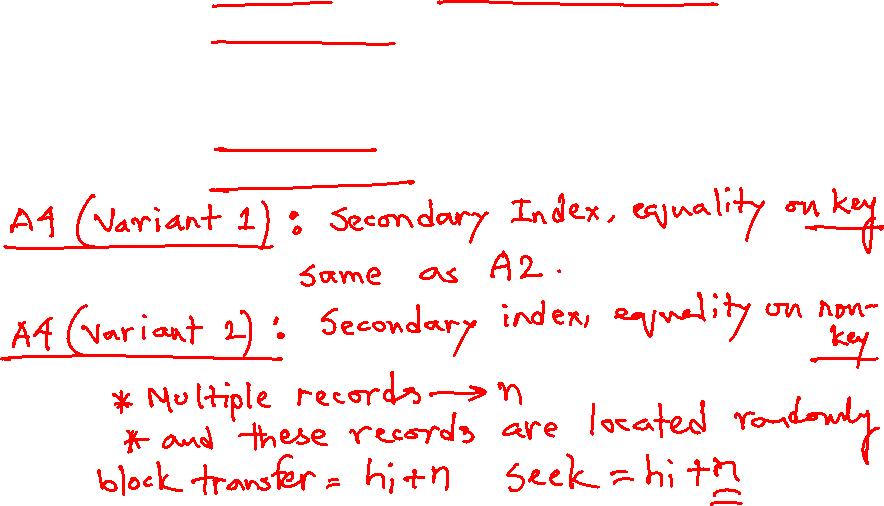 A4 (Variant 1) : Secondary Index, equality on key
same as A2.
A4 (Variant 2) : Secondary index, equality on non-
key
* Multiple records → n
* and these records are located randomly
block transfer = hi + n seek = hi + n